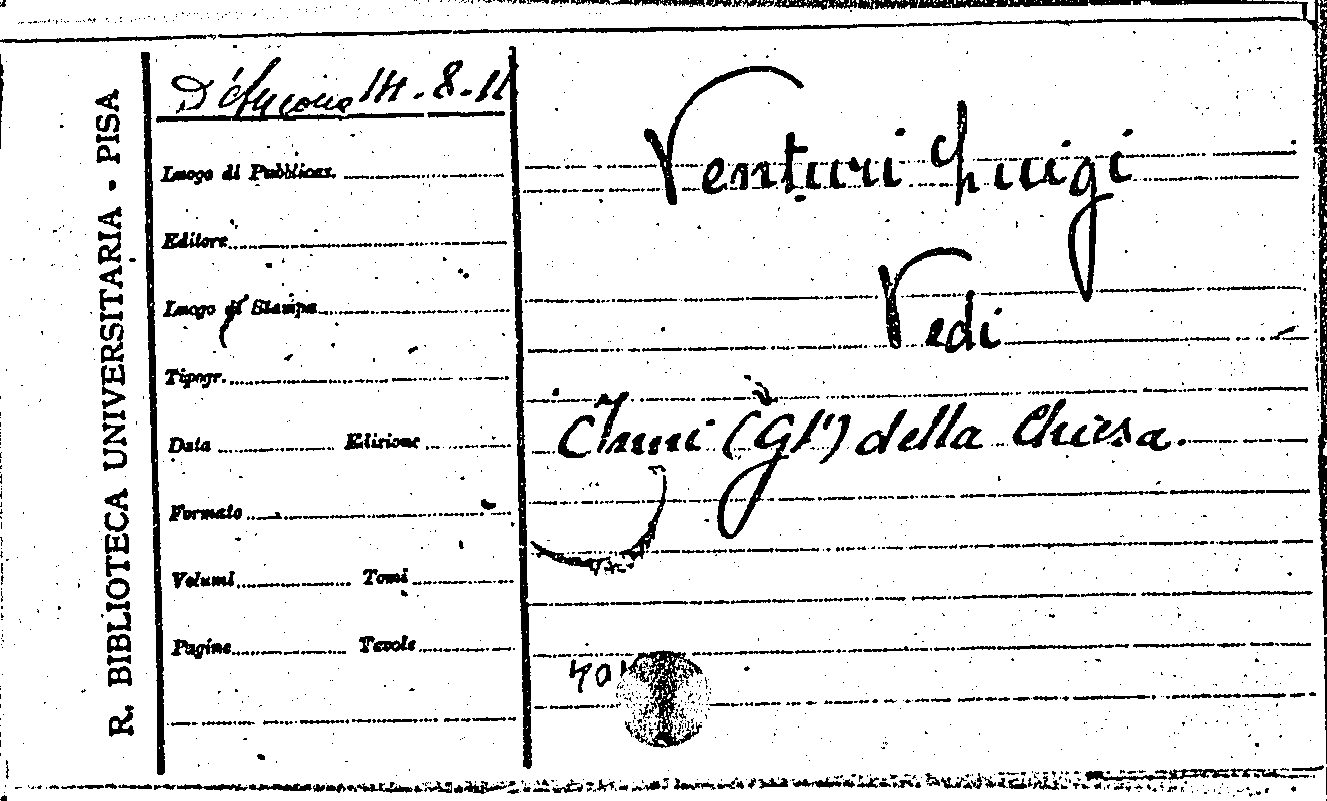 R. BIBLIOTECA UNIVERSITARIA - PISA
D'Ancona 14.8.11
Luogo di Pubblicaz.
Editore
Luogo di Stampa
Tipogr.
Data Edizione
Formato
Volumi Tomi
Pagine Tavole
Venturi Luigi
Vedi
Inni (Gl') della Chiesa.